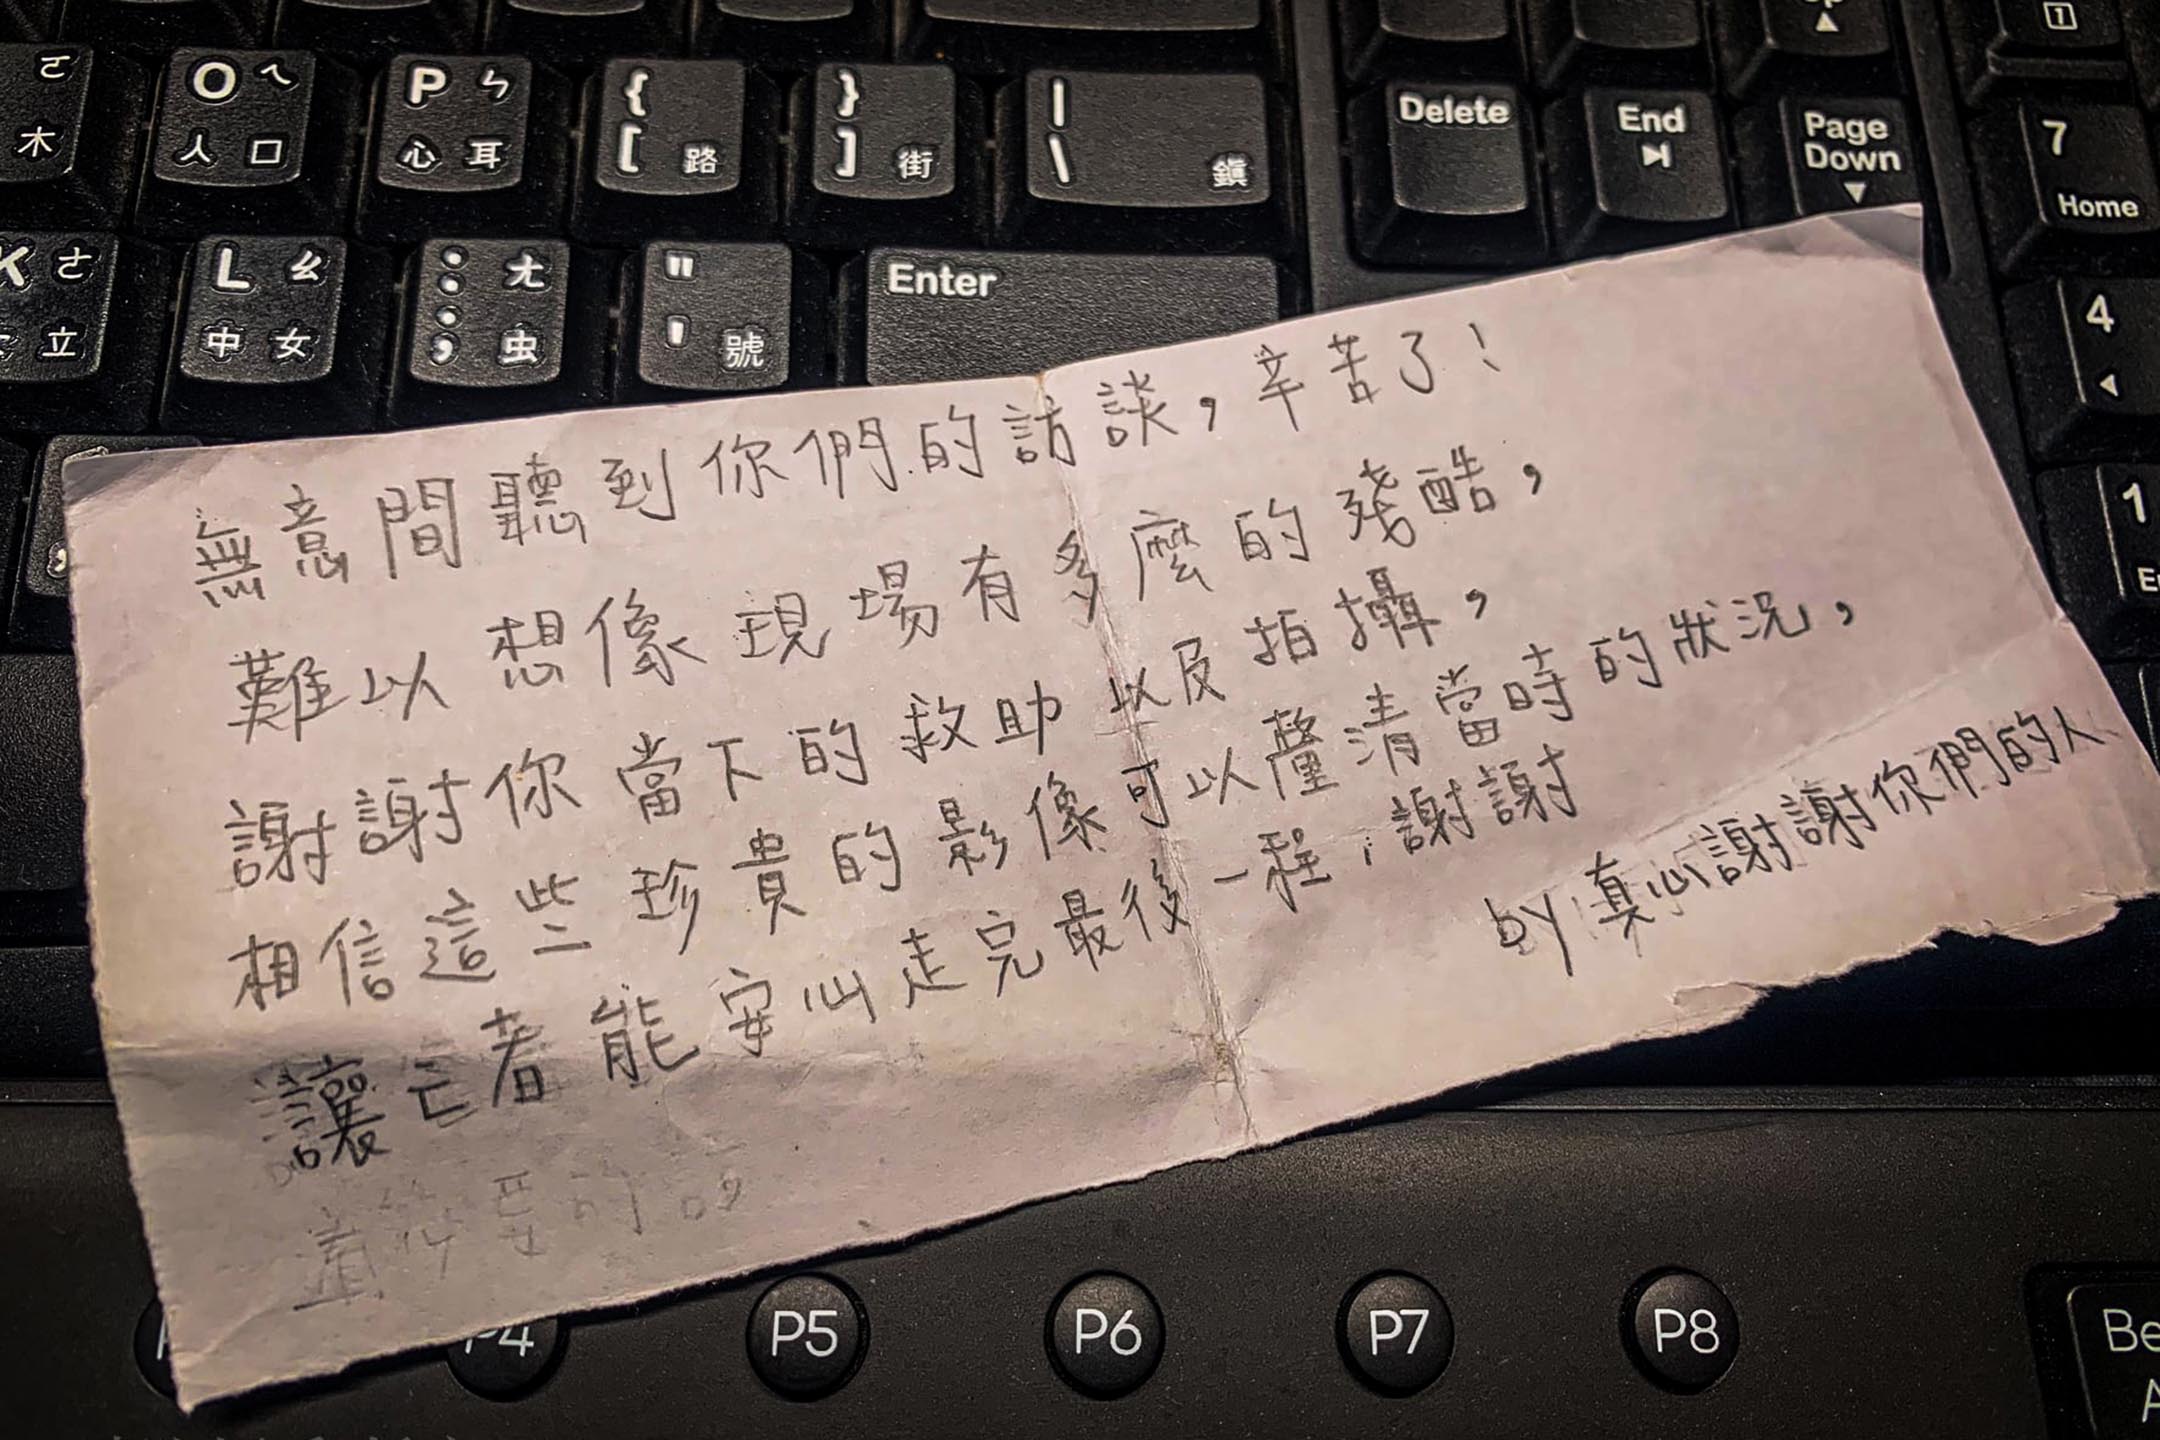 ㄛ
木
O ㄟ
人 口
P ㄣ
心 耳
{
[ 路
}
] 街
|
\ 鎮
Delete
End
Page
Down
7
Home
1
K ㄜ
立
L ㄠ
中 女
: ㄤ
; 虫
"
' 號
Enter
4
1
無意間聽到你們的訪談，辛苦了！
難以想像現場有多麼的殘酷，
謝謝你當下的救助以及拍攝，
相信這些珍貴的影像可以釐清當時的狀況，
讓亡者能安心走完最後一程；謝謝
by 真心謝謝你們的人
P4
P5
P6
P7
P8